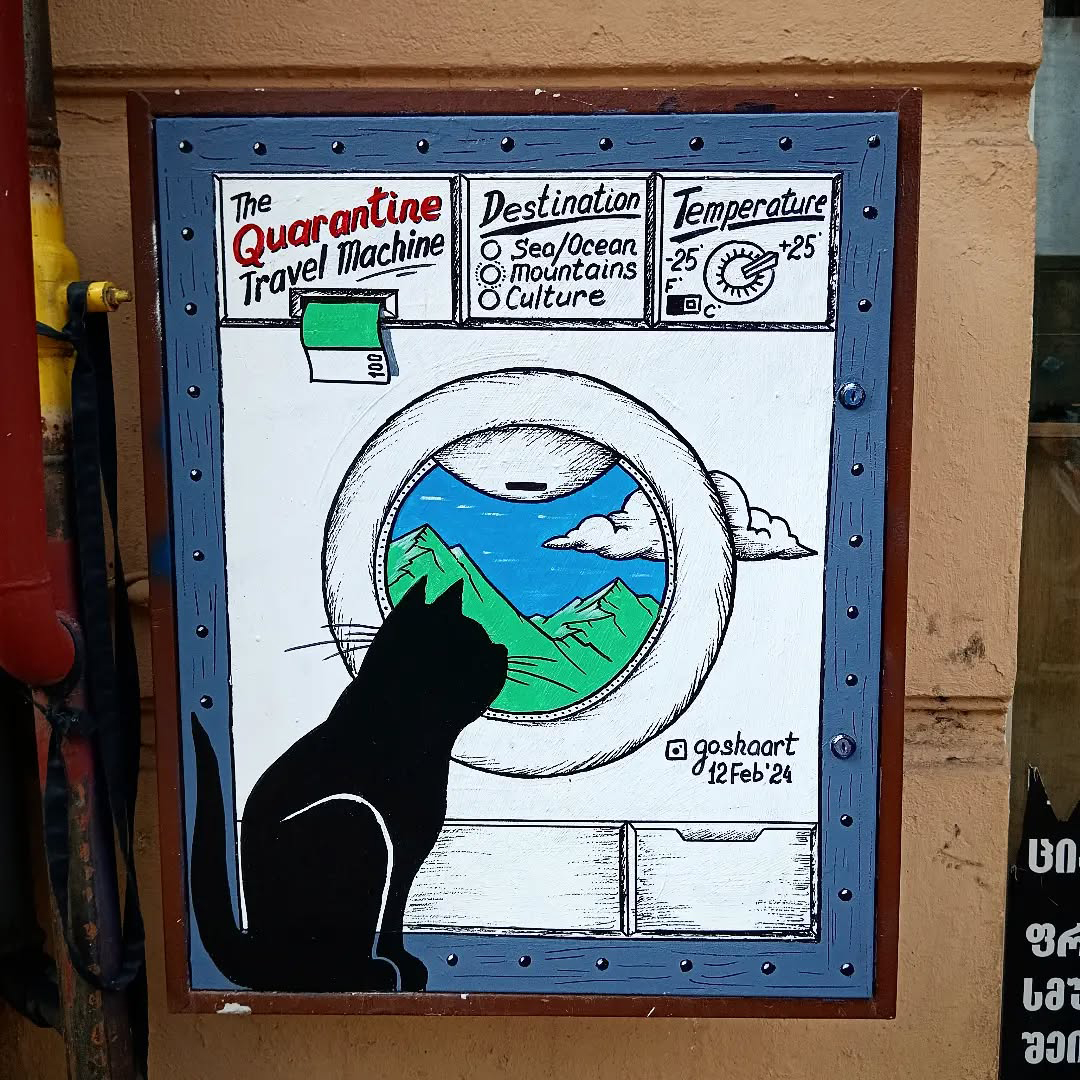 The
Quarantine
Travel Machine
100
Destination
Sea/Ocean
Mountains
Culture
Temperature
-25° +25°
F°
C°
goshaart
12 Feb, '24